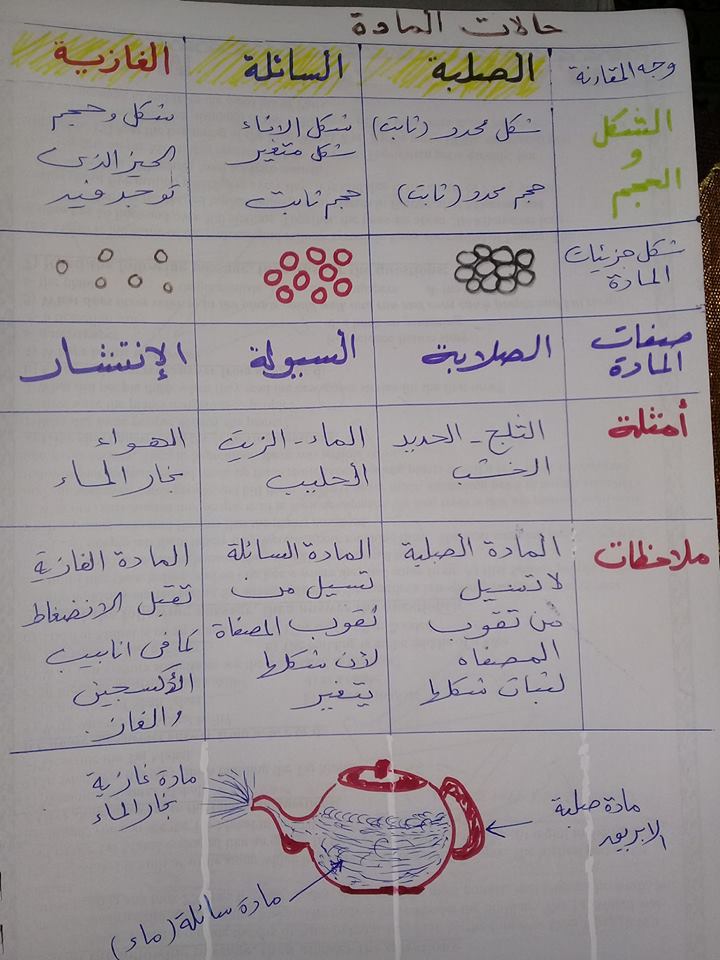 حالات المادة
وجه المقارنة
الصلبة
السائلة
الغازية
الشكل
و
الحجم
شكل محدو (ثابت)
حجم محدو (ثابت)
شكل الاناء
شكل متغير
حجم ثابت
شكل وحجم
الحيز الذى
توجد فيه
شكل جزيئات
المادة
صفات
المادة
الصلابة
السيولة
الإنتشار
أمثلة
الثلج - الحديد
الخشب
الماء - الزيت
الحليب
الهواء
بخار الماء
ملاحظات
المادة الصلبة
لا تسيل
من ثقوب
المصفاه
لثبات شكلها
المادة السائلة
تسيل من
ثقوب المصفاة
لأن شكلها
يتغير
المادة الغازية
تقبل الانضغاط
كما فى انابيب
الأكسجين
والغاز.
مادة صلبة
الابريق
مادة غازية
بخار الماء
مادة سائلة (ماء)